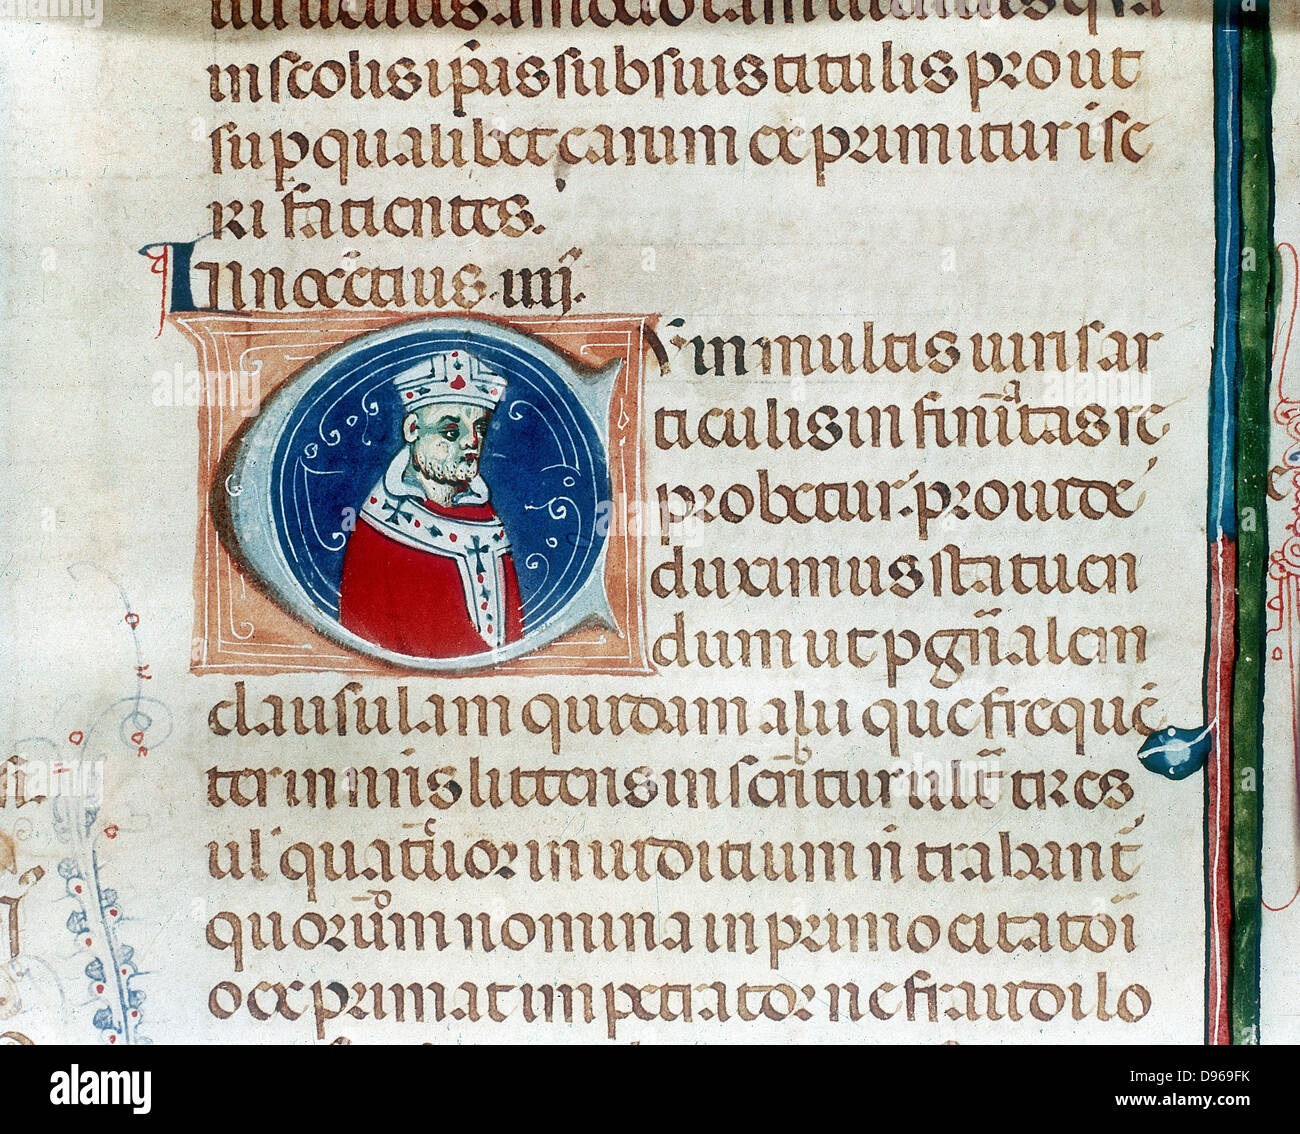 in scolis ip̄as sub suis titulis prout
sup qualibet earum exprimitur īseri
ri facientes.
Innocētius .iiij.
CV in multis iuris ar
ticulis infinitas re
probetur. prouide
duximus statuen
dum ut p gn̄alem
clausulam quidam alii que frequē
ter in nr̄is litteris inseritur ul' tres
ul' quatuor in iuditium n̄ trabant'
quorum nomina in primo citatōī
o exprimat impetrator ne fraudi lo
alamy
Image ID: D969FK
www.alamy.com